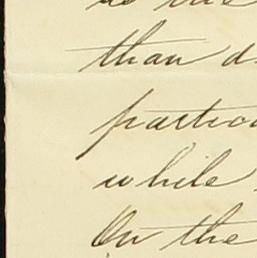 than d
partic
while
On the